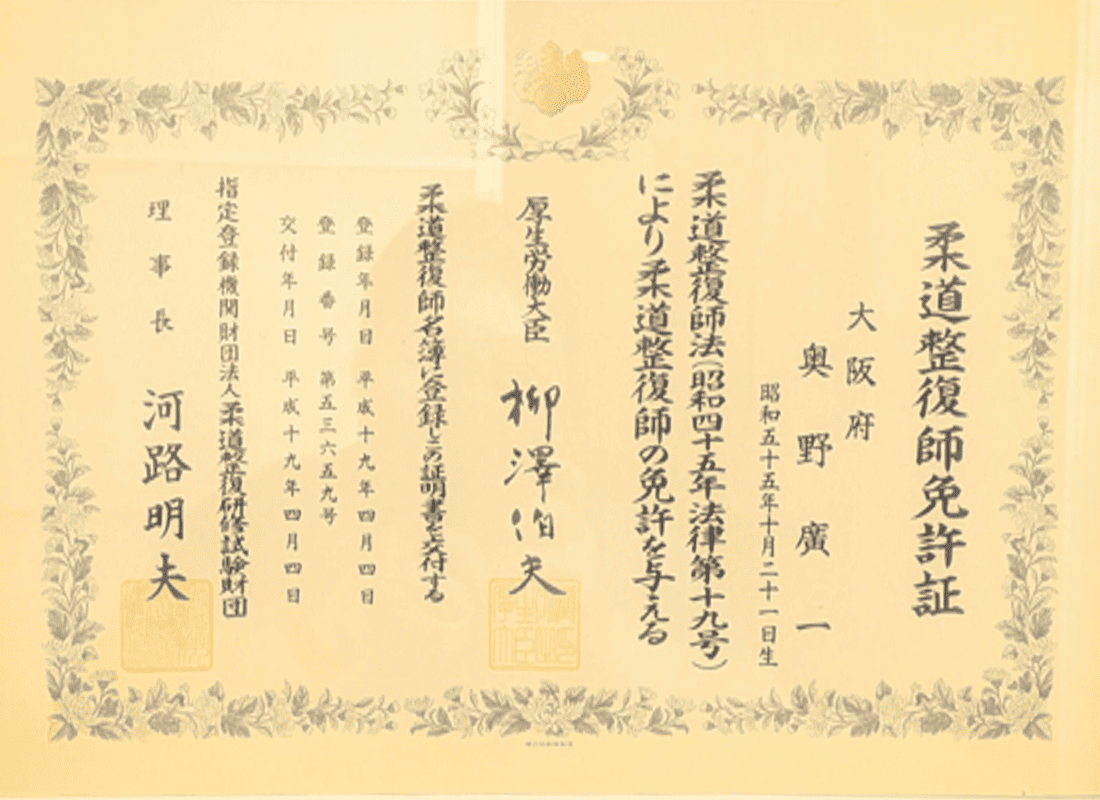 柔道整復師免許証
大阪府
奥野廣一
昭和五十五年十月二十一日生
柔道整復師法(昭和四十五年法律第十九号)
により柔道整復師の免許を与える
厚生労働大臣 柳澤伯夫
柔道整復師名簿に登録しこの証明書を交付する
登録年月日 平成十九年四月四日
登録番号 第五三六五九号
交付年月日 平成十九年四月四日
指定登録機関財団法人柔道整復研修試験財団
理事長 河路明夫